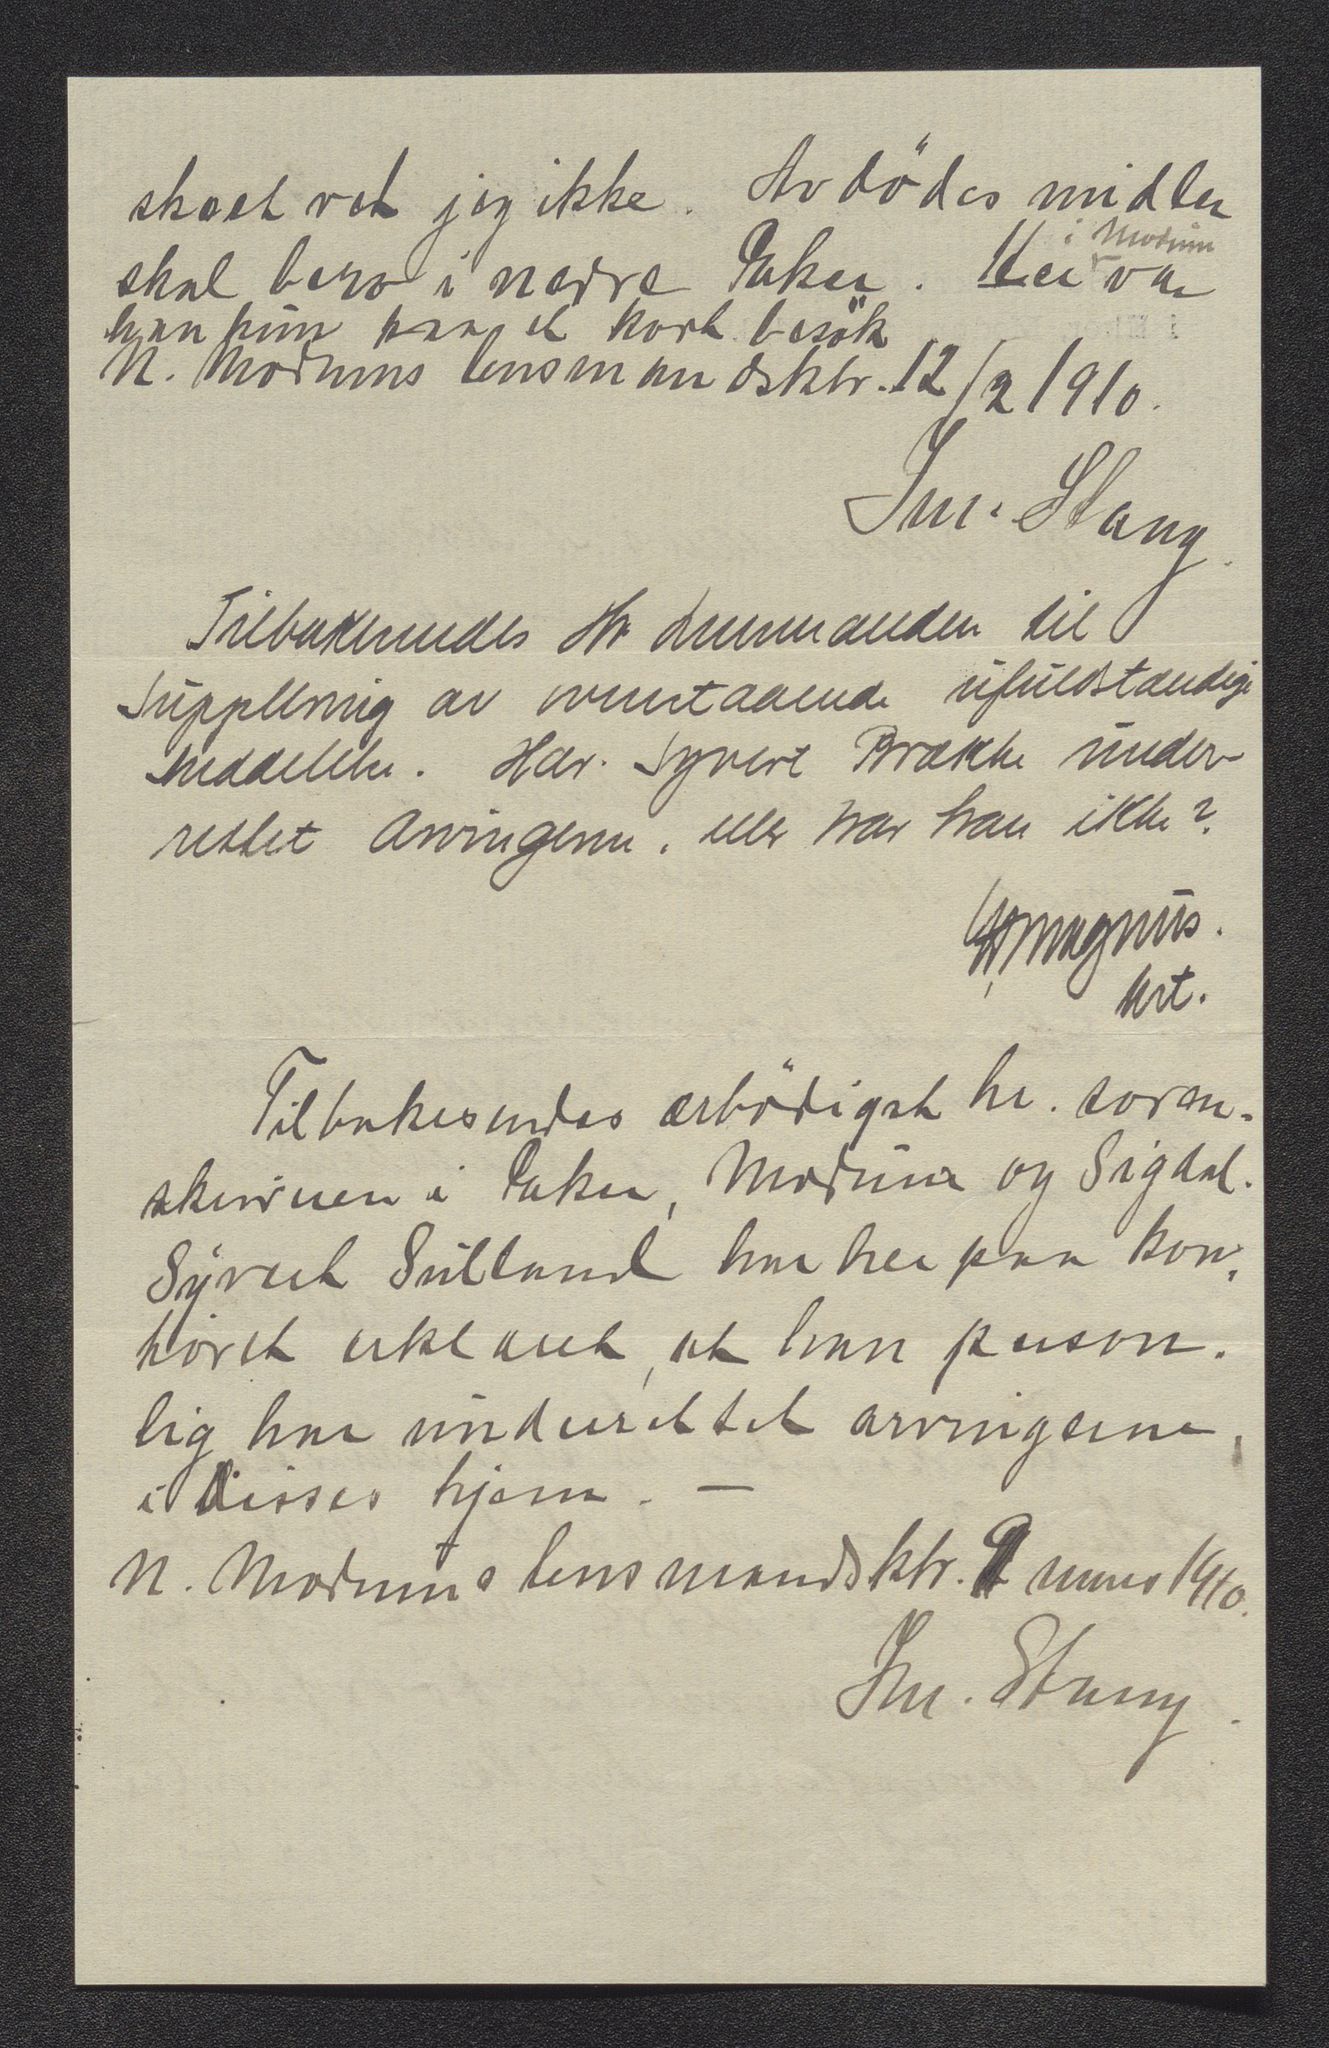 skeet vet jeg ikke. Avdödes midler
skal bero i nedre Eker. Her i Modum var
han kun paa et kort besök
N. Modums lensmandsktr. 12/2 1910.
Jm. Stang.
Tilbakesendes Hr Lensmanden til
Supplering av ovenstaaende ufuldstændige
meddelelse. Har Syvert Brække under-
rettet Arvingerne, eller har han ikke?
Magnus.
kst.
Tilbakesendes ærbödigst hr. soren-
skriveren i Eker, Modum og Sigdal.
Syvert Sulland har her paa kon-
toret erklæret, at han person-
lig har underrettet arvingerne,
i disses hjem. —
N. Modums lensmandsktr. mars 1910.
Jm. Stang.